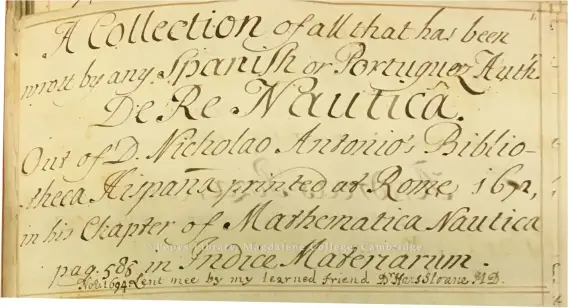 1.
A Collection of all that has been
wrott by any Spanish or Portuguez Auth.rs
De Re Nautica.
Out of D. Nicholao Antonio's Biblio-
theca Hispana printed at Rome 1672,
in his Chapter of Mathematica Nautica
Pepys Library, Magdalene College, Cambridge
pag. 586 in Indice Materiarum.
Nov. 1694 Lent mee by my learned friend Dr Hans Sloane M.D.